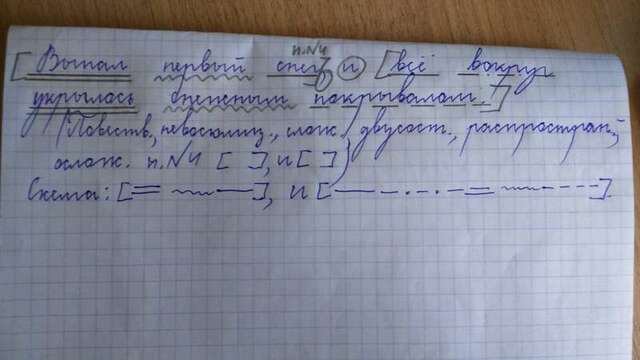 п.№4
[Выпал первый снег], и [всё вокруг
укрылось снежным покрывалом.]
(Повеств., невосклиц., слож., двусост., распростран.,
ослож. п.№4 [ ], и [ ])
Схема: [ ], и [ ].